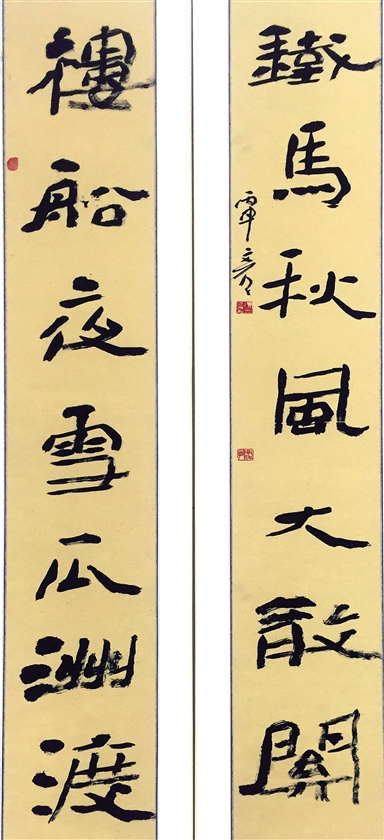 鐵馬秋風大散關
丙申
樓船夜雪瓜洲渡